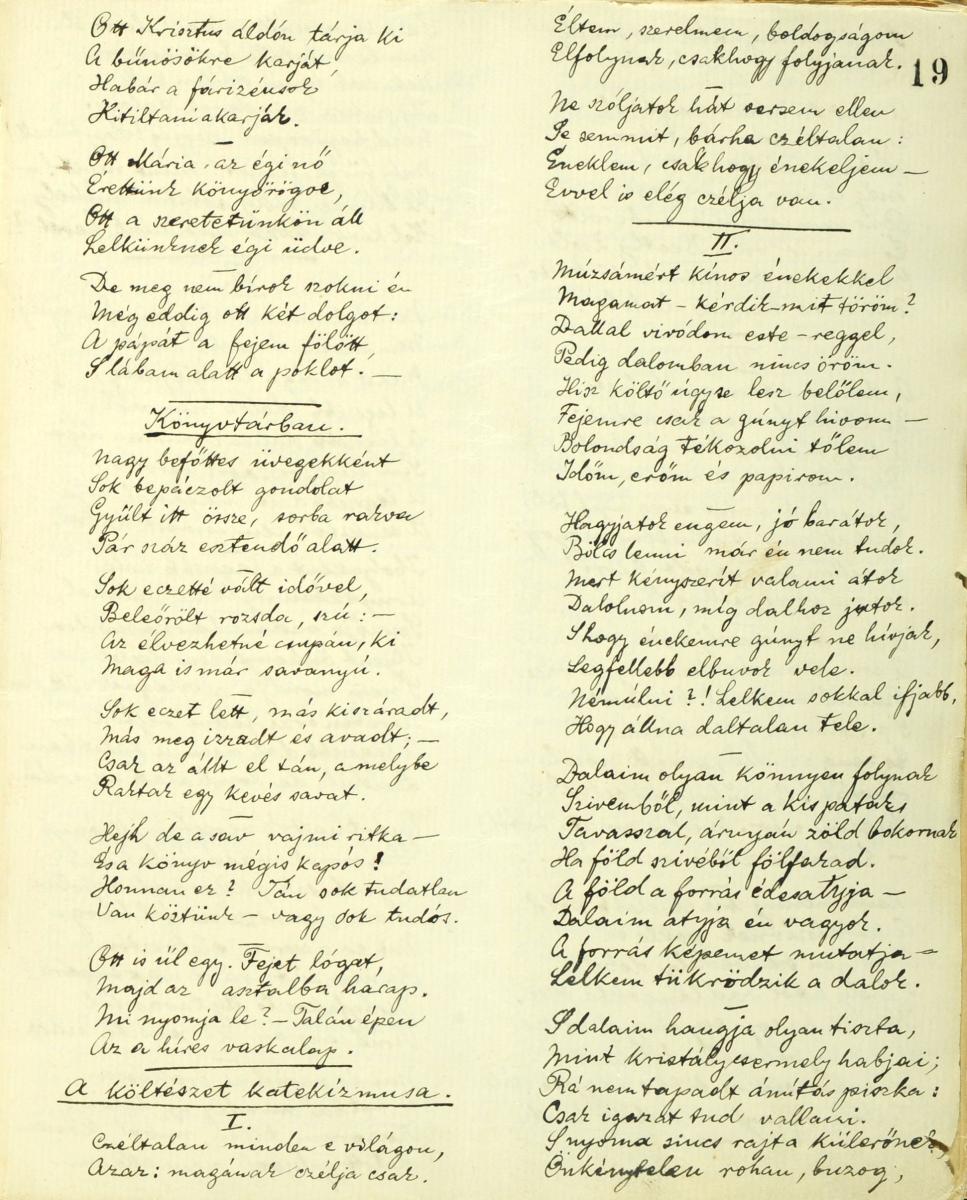 Ott Krisztus áldón tárja ki
A bűnösökre karját,
Habár a fárizéusok
Kitiltani akarják.
Ott Mária az égi nő
Érettünk könyörögve,
Ott a szeretetünkön áll
Lelkünknek égi üdve.
De meg nem bírok szokni én
Még eddig ott két dolgot:
A pápát a fejem fölött,
S lábam alatt a poklot. —
Könyvtárban.
Nagy befőttes üvegekként
Sok bepáczolt gondolat
Gyűlt itt össze, sorba rakva
Pár száz esztendő alatt.
Sok eczetté vált idővel,
Beleőrölt rozsda, szú: —
Az élvezhetné csupán, ki
Maga is már savanyú.
Sok eczet lett, más kiszáradt,
Más megizzadt és avadt; —
Csak az állt el tán, a melybe
Raktak egy kevés savat.
Hejh de a sav vajmi ritka —
És a könyv mégis kapós!
Honnan ez? Tán sok tudatlan
Van köztünk — vagy sok tudós.
Ott is ül egy. Fejet lógat,
Majd az asztalba harap.
Mi nyomja le? — Talán épen
Az a híres vaskalap.
A költészet katekizmusa.
I.
Czéltalan minden e világon,
Azaz: magának czélja csak.
Éltem, szerelmem, boldogságom
Elfolynak, csakhogy folyjanak.
19
Ne szóljatok hát versem ellen
Se semmit, bárha czéltalan:
Éneklem, csakhogy énekeljem —
Evvel is elég czélja van.
II.
Múzsámért kínos énekekkel
Magamat – kérdik – mit töröm?
Dallal vivódom este – reggel,
Pedig dalomban nincs öröm.
Hisz költő úgyse lesz belőlem,
Fejemre csak a gúnyt hivom —
Bolondság tékozolni tőlem
Időm, erőm és papirom.
Hagyjatok engem, jó barátok,
Bölcs lenni már én nem tudok.
Mert kényszerít valami átok
Dalolnom, míg dalhoz jutok.
S hogy énekemre gúnyt ne hívjak,
Legfellebb elbuvok vele.
Némulni?! Lelkem sokkal ifjabb,
Hogy állna daltalan tele.
Dalaim olyan könnyen folynak
Szivemből, mint a kis patak,
Tavasszal, árnyán zöld bokornak
Ha föld szivéből fölfakad.
A föld a forrás édesatyja —
Dalaim atyja én vagyok.
A forrás képemet mutatja —
Lelkem tükrödzik a dalok.
S dalaim hangja olyan tiszta,
Mint kristálycsermely habjai;
Rá nem tapadt ámítás piszka:
Csak igazat tud vallani.
S nyoma sincs rajta külerőnek,
Önkénytelen rohan, buzog,